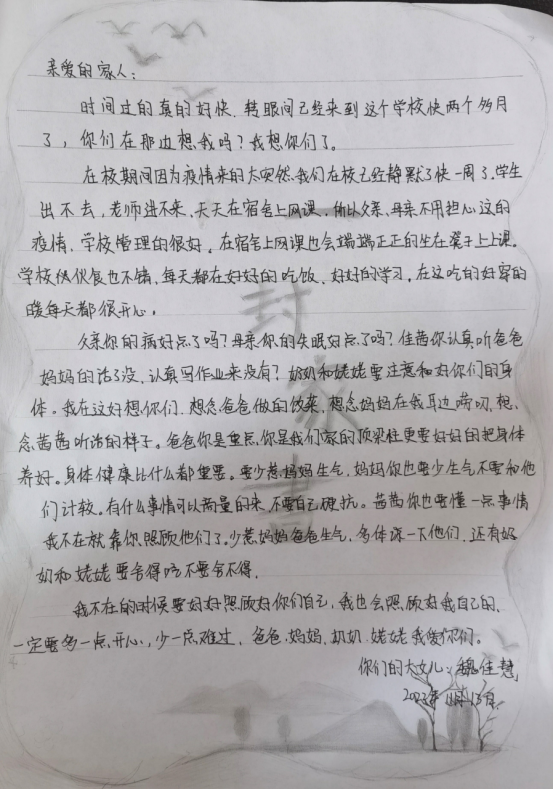 亲爱的家人:
时间过的真的好快,转眼间已经来到这个学校快两个多月
了,你们在那边想我吗?我想你们了。
在校期间因为疫情来的太突然,我们在校已经静默了快一周了.学生
出不去,老师进不来,天天在宿舍上网课,所以父亲、母亲不用担心这的
疫情、学校管理的很好。在宿舍上网课也会端端正正的坐在凳子上上课。
学校伙食也不错,每天都在好好的吃饭、好好的学习,在这吃的好穿的
暖每天都很开心。
父亲你的病好点了吗?母亲你的失眠好点了吗?佳茜你认真听爸爸
妈妈的话了没、认真写作业来没有?奶奶和姥姥要注意和好你们的身
体。我在这好想你们、想念爸爸做的饭菜、想念妈妈在我耳边唠叨、想
念茜茜听话的样子。爸爸你是重点,你是我们家的顶梁柱更要好好的把身体
养好。身体健康比什么都重要。要少惹妈妈生气,妈妈你也要少生气不要和他
们计较。有什么事情可以商量的来,不要自己硬抗。茜茜你也要懂一点事情
我不在就靠你照顾他们了。少惹妈妈爸爸生气,多体谅一下他们,还有奶
奶和姥姥要舍得吃不要舍不得。
我不在的时候要好好照顾好你们自己,我也会照顾好我自己的,
一定要多一点开心,少一点难过,爸爸、妈妈、奶奶、姥姥我爱你们。
你们的大女儿:魏佳慧
月13日
一封家书